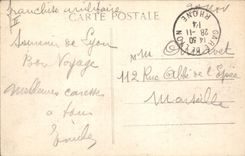 franchise militaire
CARTE POSTALE
GARE DE LYON
14 30
28-11
14
RHONE
Souvenir de Lyon
Bon Voyage
Meilleures caresses
à tous
Emile
112 Rue Abbé de l'Epée
Marseille